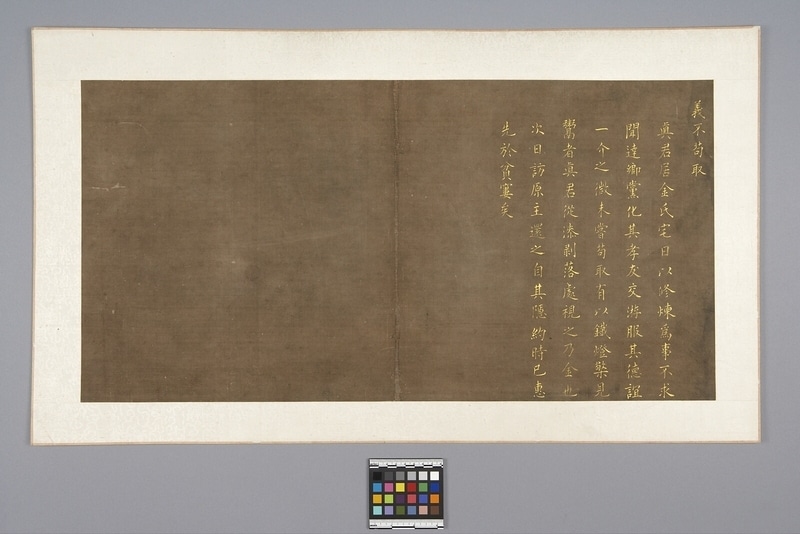 義不苟取
真君居金氏宅日以修煉為事不求
聞達鄉黨化其孝友交游服其德誼
一介之微未嘗苟取有以鐵燈檠見
鬻者真君從漆剝落處視之乃金也
次日訪原主還之自其隱約時已惠
先於貧窶矣